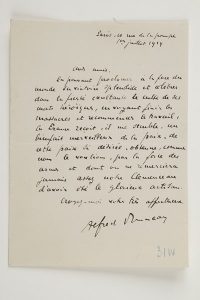 Paris, 10 rue de la pompe
1er juillet 1919
cher ami.
En pensant proclamer à la face du
monde la victoire splendide et célébrer
dans la                 constante le culte de nos
morts héroïques, en voyant finir les
massacres et recommencer le travail,
la France reçoit, il me semble, un
bienfait merveilleux de la paix, de
cette paix si désirée, obtenue, comme
nous le voulions, par la force des
armes et dont on ne remerciera
jamais assez notre Clemenceau
d'avoir été le glorieux artisan
Croyez-moi votre très affectueux
Alfred